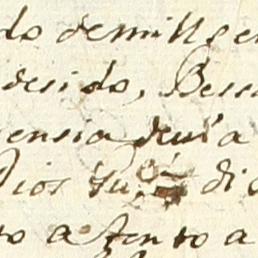 do demill ge
desido, Bes
ensia deuia
Dios su di
to atento a